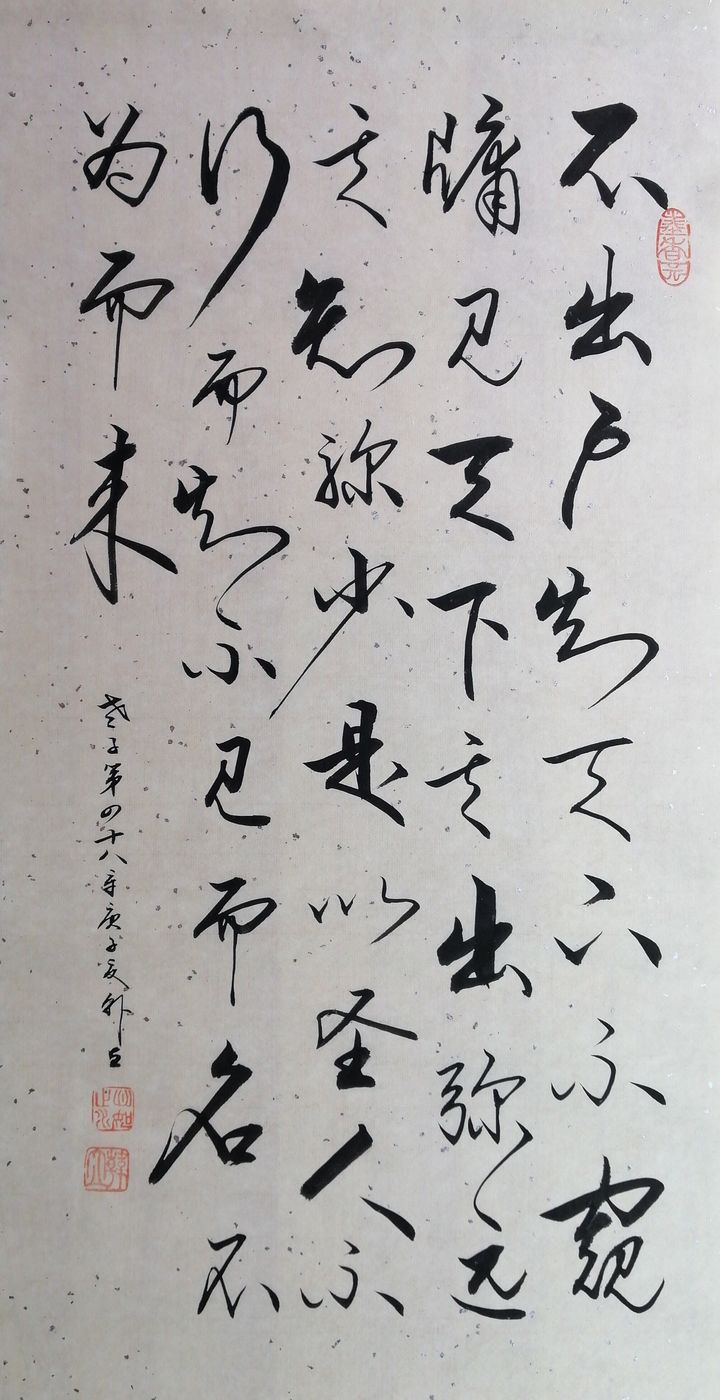 不出户知天下不窥
牖见天下其出弥远
其知弥少是以圣人不
行而知不见而名不
为而来
老子第四十八章庚子夏
心如止水